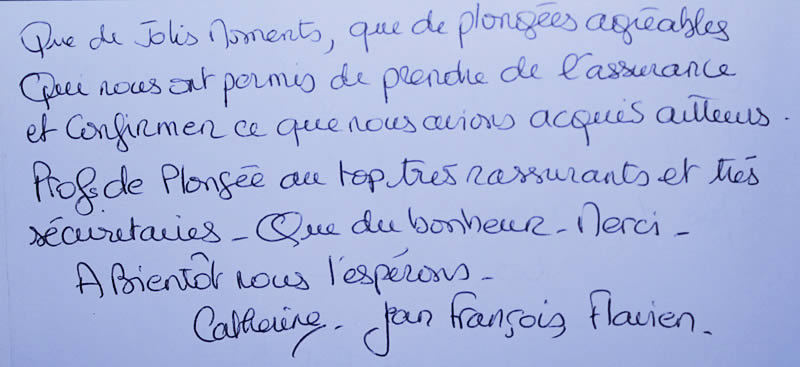 Que de Jolis Moments, que de plongées agréables
Qui nous ont permis de prendre de l'assurance
et Confirmer ce que nous avions acquis ailleurs.
Profs de Plongée au top, très rassurants et très
sécuritaires - Que du bonheur - Merci -
A Bientôt nous l'espérons -
Catherine - Jean François, Flavien -